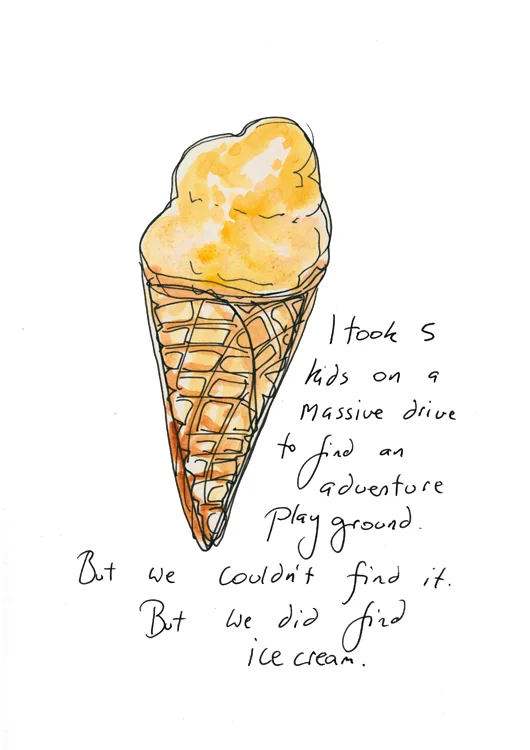 I took 5
kids on a
Massive drive
to find an
adventure
Playground.
But we couldn't find it.
But we did find
ice cream.